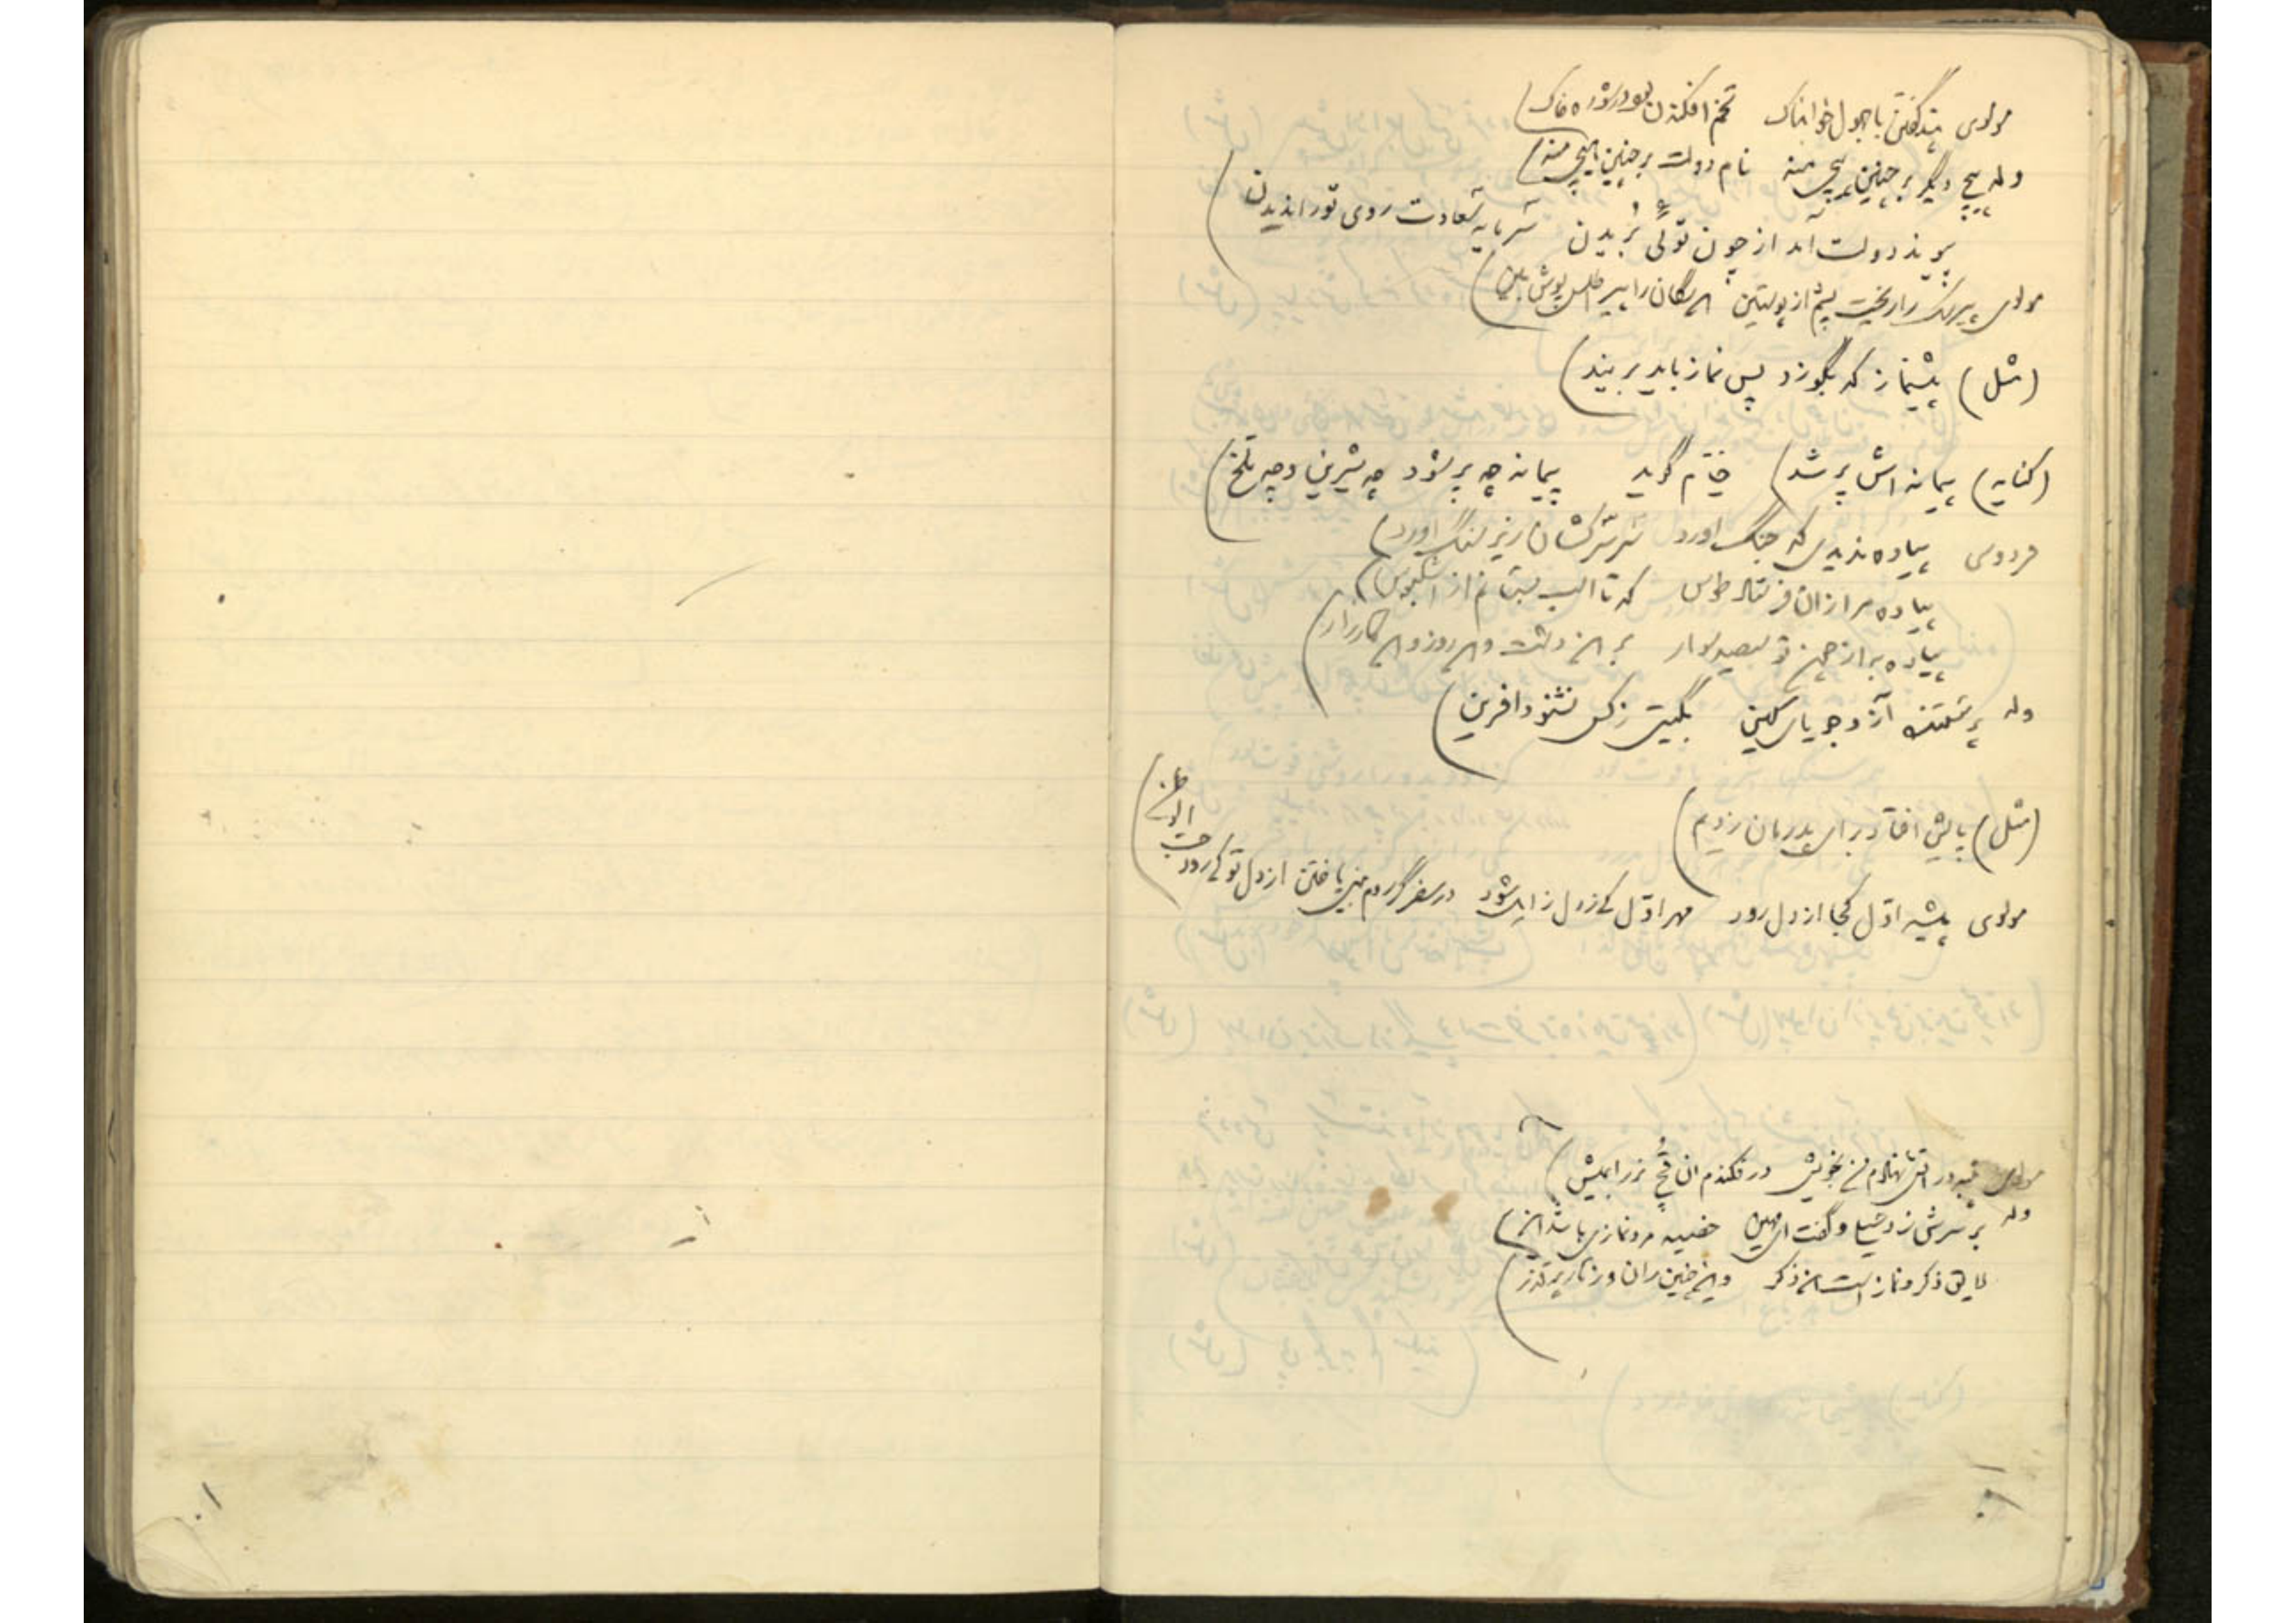 مولوی پند گفتن با جهول خوابناک تخم افکندن بود در شوره خاک
وله هیچ دیگر بر چنین هیچی منه نام دولت بر چنین هیچی منه
پیوند دولت آمد از چون توئی بریدن سرمایه سعادت روی تو را ندیدن
مولوی پیر سگ را ریخت پشم از پوستین سگان را پیر اطلس پوش بین
(مثل) پیشنماز که بگوزد پس نماز باید بریند
(کنایه) پیمانه اش پر شد) خیام گوید پیمانه چه پر شود چه شیرین و چه تلخ
فردوسی پیاده ندیدی که جنگ اورد سر سرکشان زیر سنگ اورد
پیاده مرا زان فرستاد طوس که تا اسب بستانم از اشکبوس
پیاده به از چون تو سیصد سوار بر این دشت و این روز و این کارزار
وله پرستنده آز و جویای کین بگیتی ز کس نشنود افرین
(مثل) پایش افتاد برای پدرمان زدیم
مولوی پیشه اول کجا از دل رود مهر اول کی ز دل زایل شود در سفر گر روم بینی یا ختن از دل تو کی رود حب الوطن
مولوی در فکندم ان قچ نذر را به میش
وله بر سرش زد سیلی و گفت ای مهین خصیه مرد نمازی باشد این
لایق ذکر و نماز است این ذکر وین چنین ران و زهار پر قذر